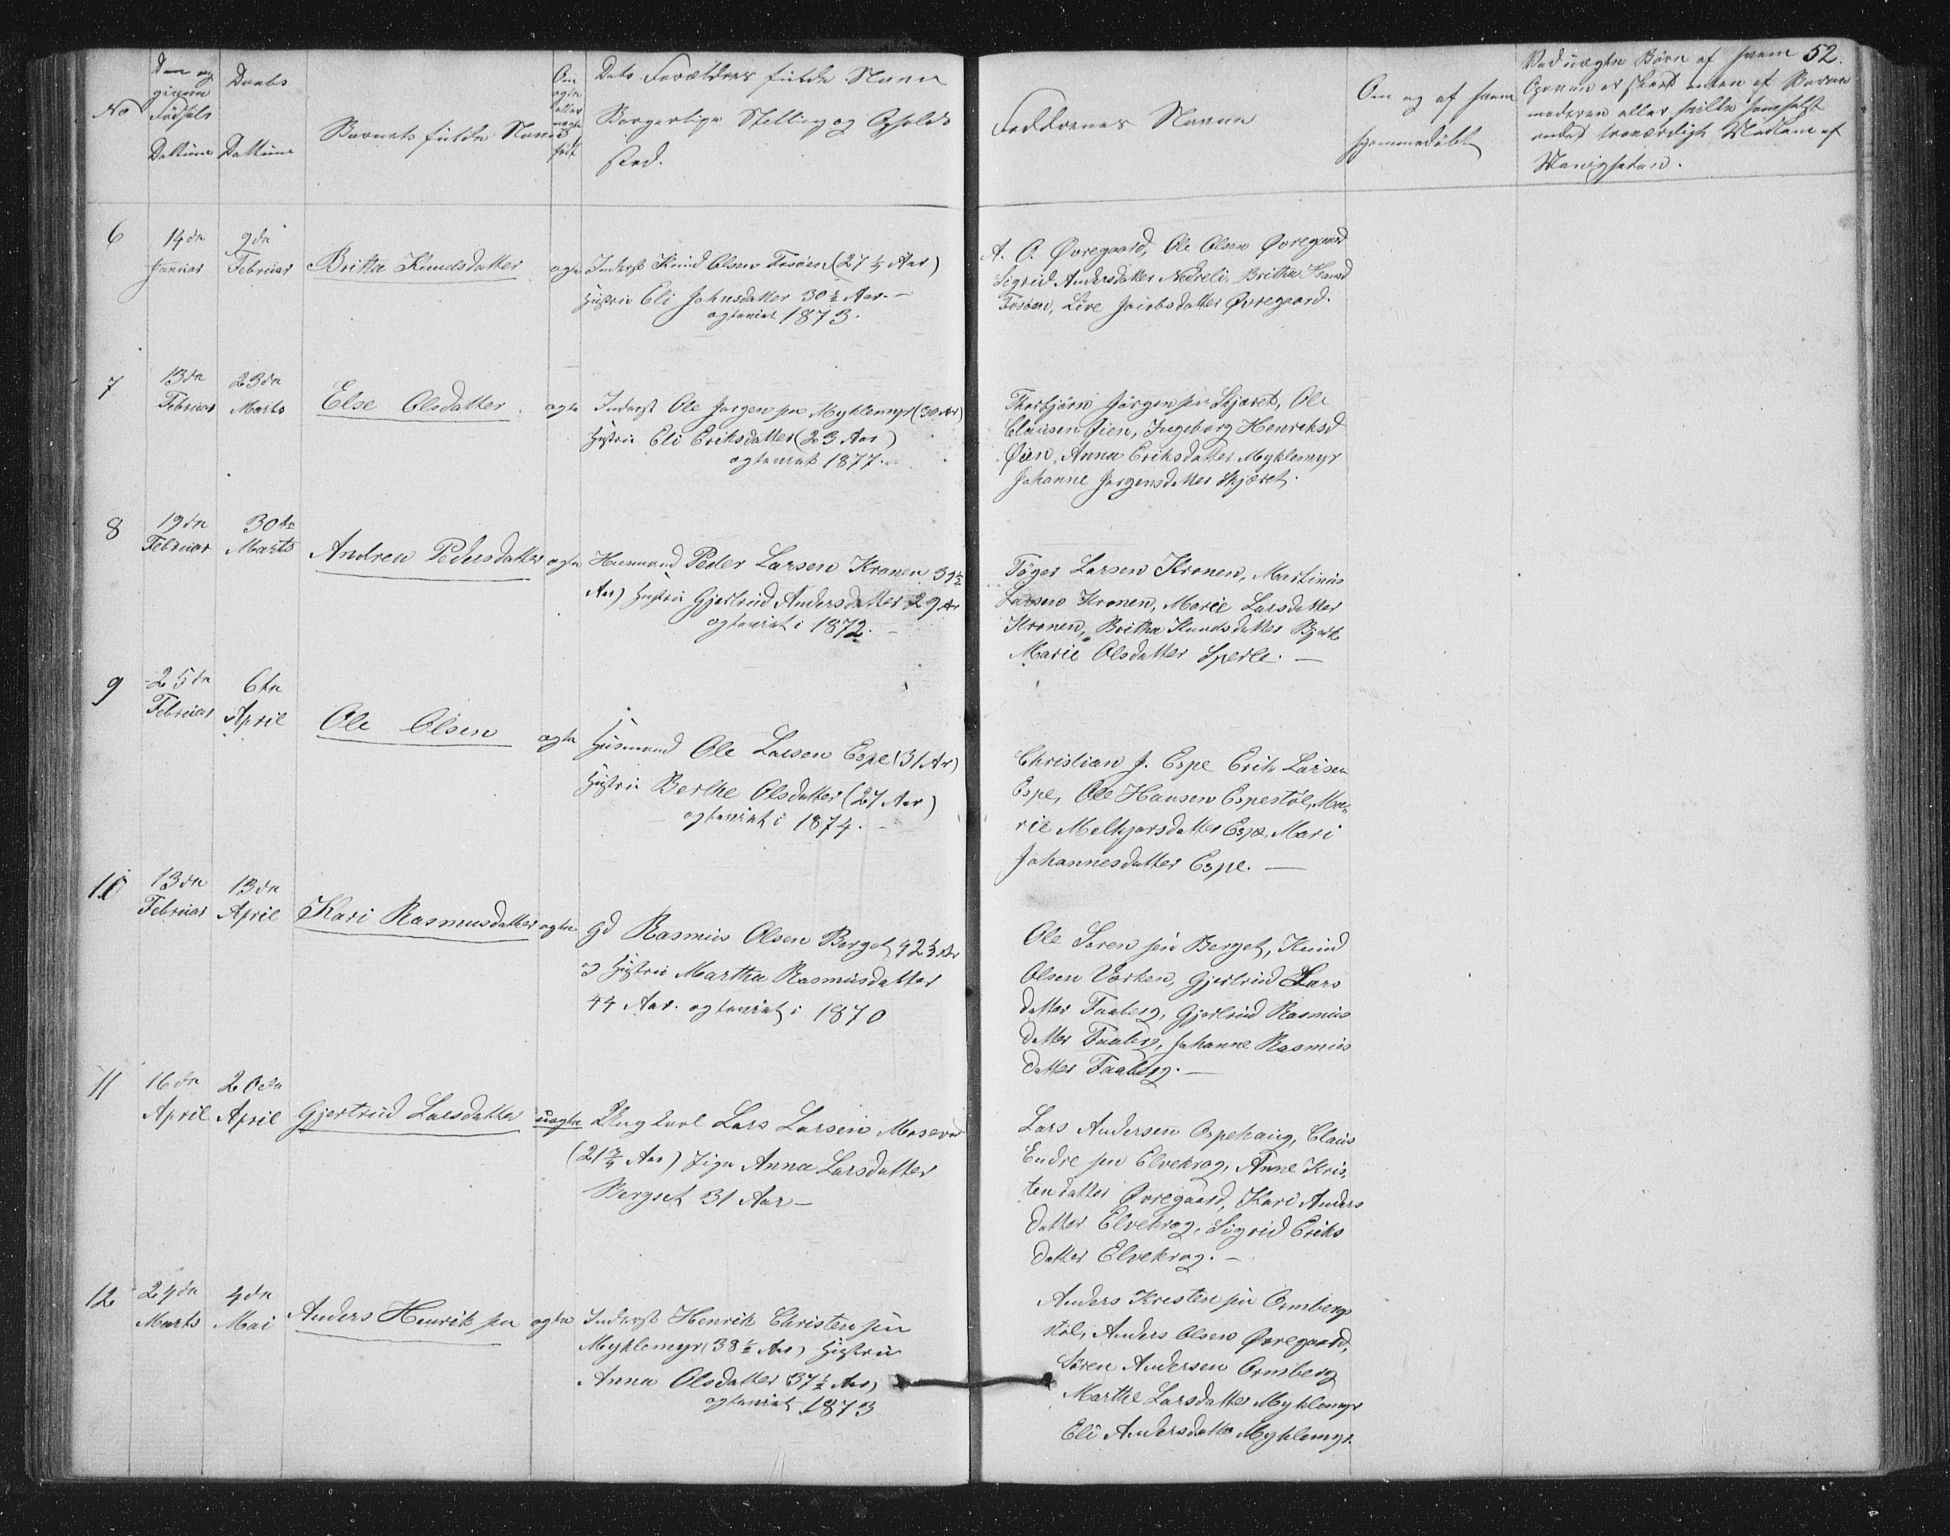 52.
No
Den og
givne
Fødsels
Dattum
Daabs
Dattum
Barnets fulde Navn
Om
ægte
eller
uægte
født
Dets Forældres fulde Navn
Borgerlige Stilling og Opholds
sted.
Faddernes Navne
Om og af hvem
hjemmedøbt
Ved uægte Børn af hvem
Opgaven er skeet enten af Barne
moderen eller hvilke somhelst
andet troværdigt Medlem af
Menigheden.
6
14de
Januar
9de
Februar
Britta Knudsdatter
ægte
Inderst Knud Olsen Fosøen (27 ½ Aar)
Hustru Eli Johnsdatter 30 ½ Aar. –
ægteviet 1873.
A. O. Øvregaard, Ole Olsen Øvregaard
Sigrid Andersdatter Nedreli, Britha
Fosøen, Live Jacobsdatter Øvregaard.
7
13de
Februar
23de
Marts
Else Olsdatter
ægte
Inderst Ole Jørgensen Myklemyr (30 Aar)
Hustru Eli Eriksdatter (23 Aar)
ægteviet 1877.
Thorbjørn Jørgensen Skjæret, Ole
Clausen Øien, Ingeborg Henriksd
Øien, Anna Eriksdatter Myklemyr
Johanne Jørgensdatter Skjæret.
8
19de
Februar
30te
Marts
Andrea Pedersdatter
ægte
Husmand Peder Larsen Kronen 31½
Aar) Hustru Gjertrud Andersdatter 29 Aar
ægteviet i 1872. –
Tøger Larsen Kronen, Martinus
Larsen Kronen, Marie Larsdatter
Kronen, Britha Knudsdatter Bjørk
Marie Olsdatter Sperle. –
9
25de
Februar
6te
April
Ole Olsen
ægte
Husmand Ole Larsen Espe (31 Aar)
Hustru Berthe Olsdatter (27 Aar)
ægteviet i 1874. –
Christian J. Espe Erik Larsen
Espe, Ole Hansen Espestøl, Ma-
rie Melkjorsdatter Espe, Mari
Johannesdatter Espe. –
10
13de
Februar
13de
April
Kari Rasmusdatter
ægte
Gd Rasmus Olsen Berget 42 ½ Aar
og Hustru Martha Rasmusdatter
44 Aar. ægteviet i 1870
Ole Sørensen Berget, Knud
Olsen Vorken, Gjertrud Lars
datter Faaberg, Gjertrud Rasmus
datter Faaberg, Johanne Rasmus
datter Faaberg. –
11
16de
April
20de
April
Gjertrud Larsdatter
uægte
Ungkarl Lars Larsen Moseved
(21 ¾ Aar) Pige Anna Larsdatter
Bergset 31 Aar –
Lars Andersen Espehaug, Claus
Endresen Elvekrog, Anne Kris,
tendatter Øvregaard, Kari Anders
datter Elvekrog, Sigrid Eriks
datter Elvekrog. –
12
24de
Marts
4de
Mai
Anders Henriksen
ægte
Inderst Henrik Christensen
Myklemyr (38 ½ Aar) Hustru
Anna Olsdatter 37 ½ Aar)
ægteviet 1873
Anders Kristensen Ormberg
støl, Anders Olsen Øvregaard,
Søren Andersen Ormberg
Marthe Larsdatter Myklemyr
Eli Andersdatter Myklemyr.